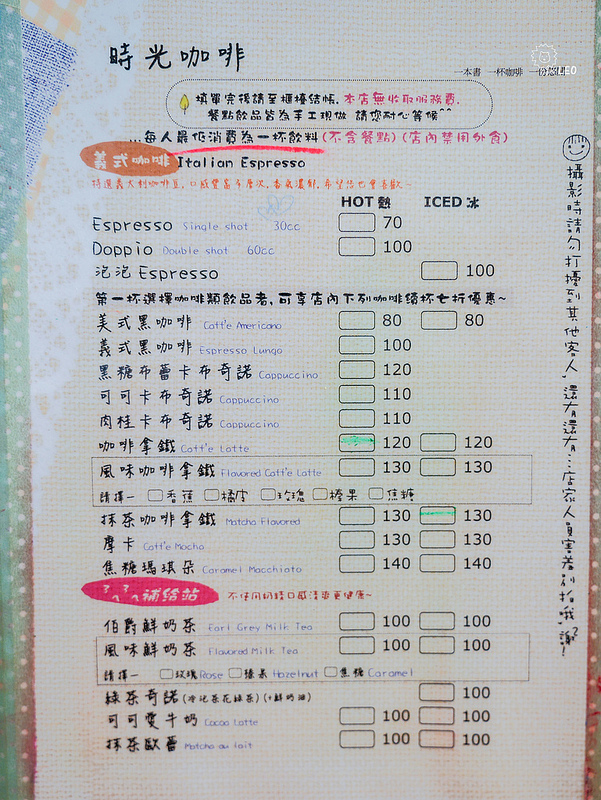 時光咖啡
一本書 一杯咖啡 一份悠閒
LEO
填單完後請至櫃檯結帳,本店無收取服務費.
餐點飲品皆為手工現做 請您耐心等候^^
...每人最低消費為一杯飲料(不含餐點)(店內禁用外食)
義式咖啡 Italian Espresso
特選義大利咖啡豆,口感豐富多層次,香氣濃郁,希望您也會喜歡~
HOT 熱 ICED 冰
Espresso Single shot 30cc 70
Doppio Double shot 60cc 100
泡泡 Espresso 100
第一杯選擇咖啡類飲品者,可享店內下列咖啡續杯七折優惠~
美式黑咖啡 Caff'e Americano 80 80
義式黑咖啡 Espresso Lungo 100
黑糖布蕾卡布奇諾 Cappuccino 120
可可卡布奇諾 Cappuccino 110
肉桂卡布奇諾 Cappuccino 110
咖啡拿鐵 Caff'e Latte 120 120
風味咖啡拿鐵 Flavored Caff'e Latte 130 130
請擇一 香蕉 橘皮 玫瑰 榛果 焦糖
抹茶咖啡拿鐵 Matcha Flavored 130 130
摩卡 Caff'e Mocha 130 130
焦糖瑪琪朵 Caramel Macchiato 140 140
ㄋㄟㄋㄟ補給站 不使用奶精口感清爽更健康~
伯爵鮮奶茶 Earl Grey Milk Tea 100 100
風味鮮奶茶 Flavored Milk Tea 100 100
請擇一 玫瑰Rose 榛果Hazelnut 焦糖Caramel
綠茶奇諾(冷泡茶花綠茶)(+鮮奶油) 100
可可愛牛奶 Cocoa Latte 100 100
抹茶歐蕾 Matcha au lait 100 100
攝影時請勿打擾到其他客人,還有還有...店家人員害羞別拍哦,謝謝!